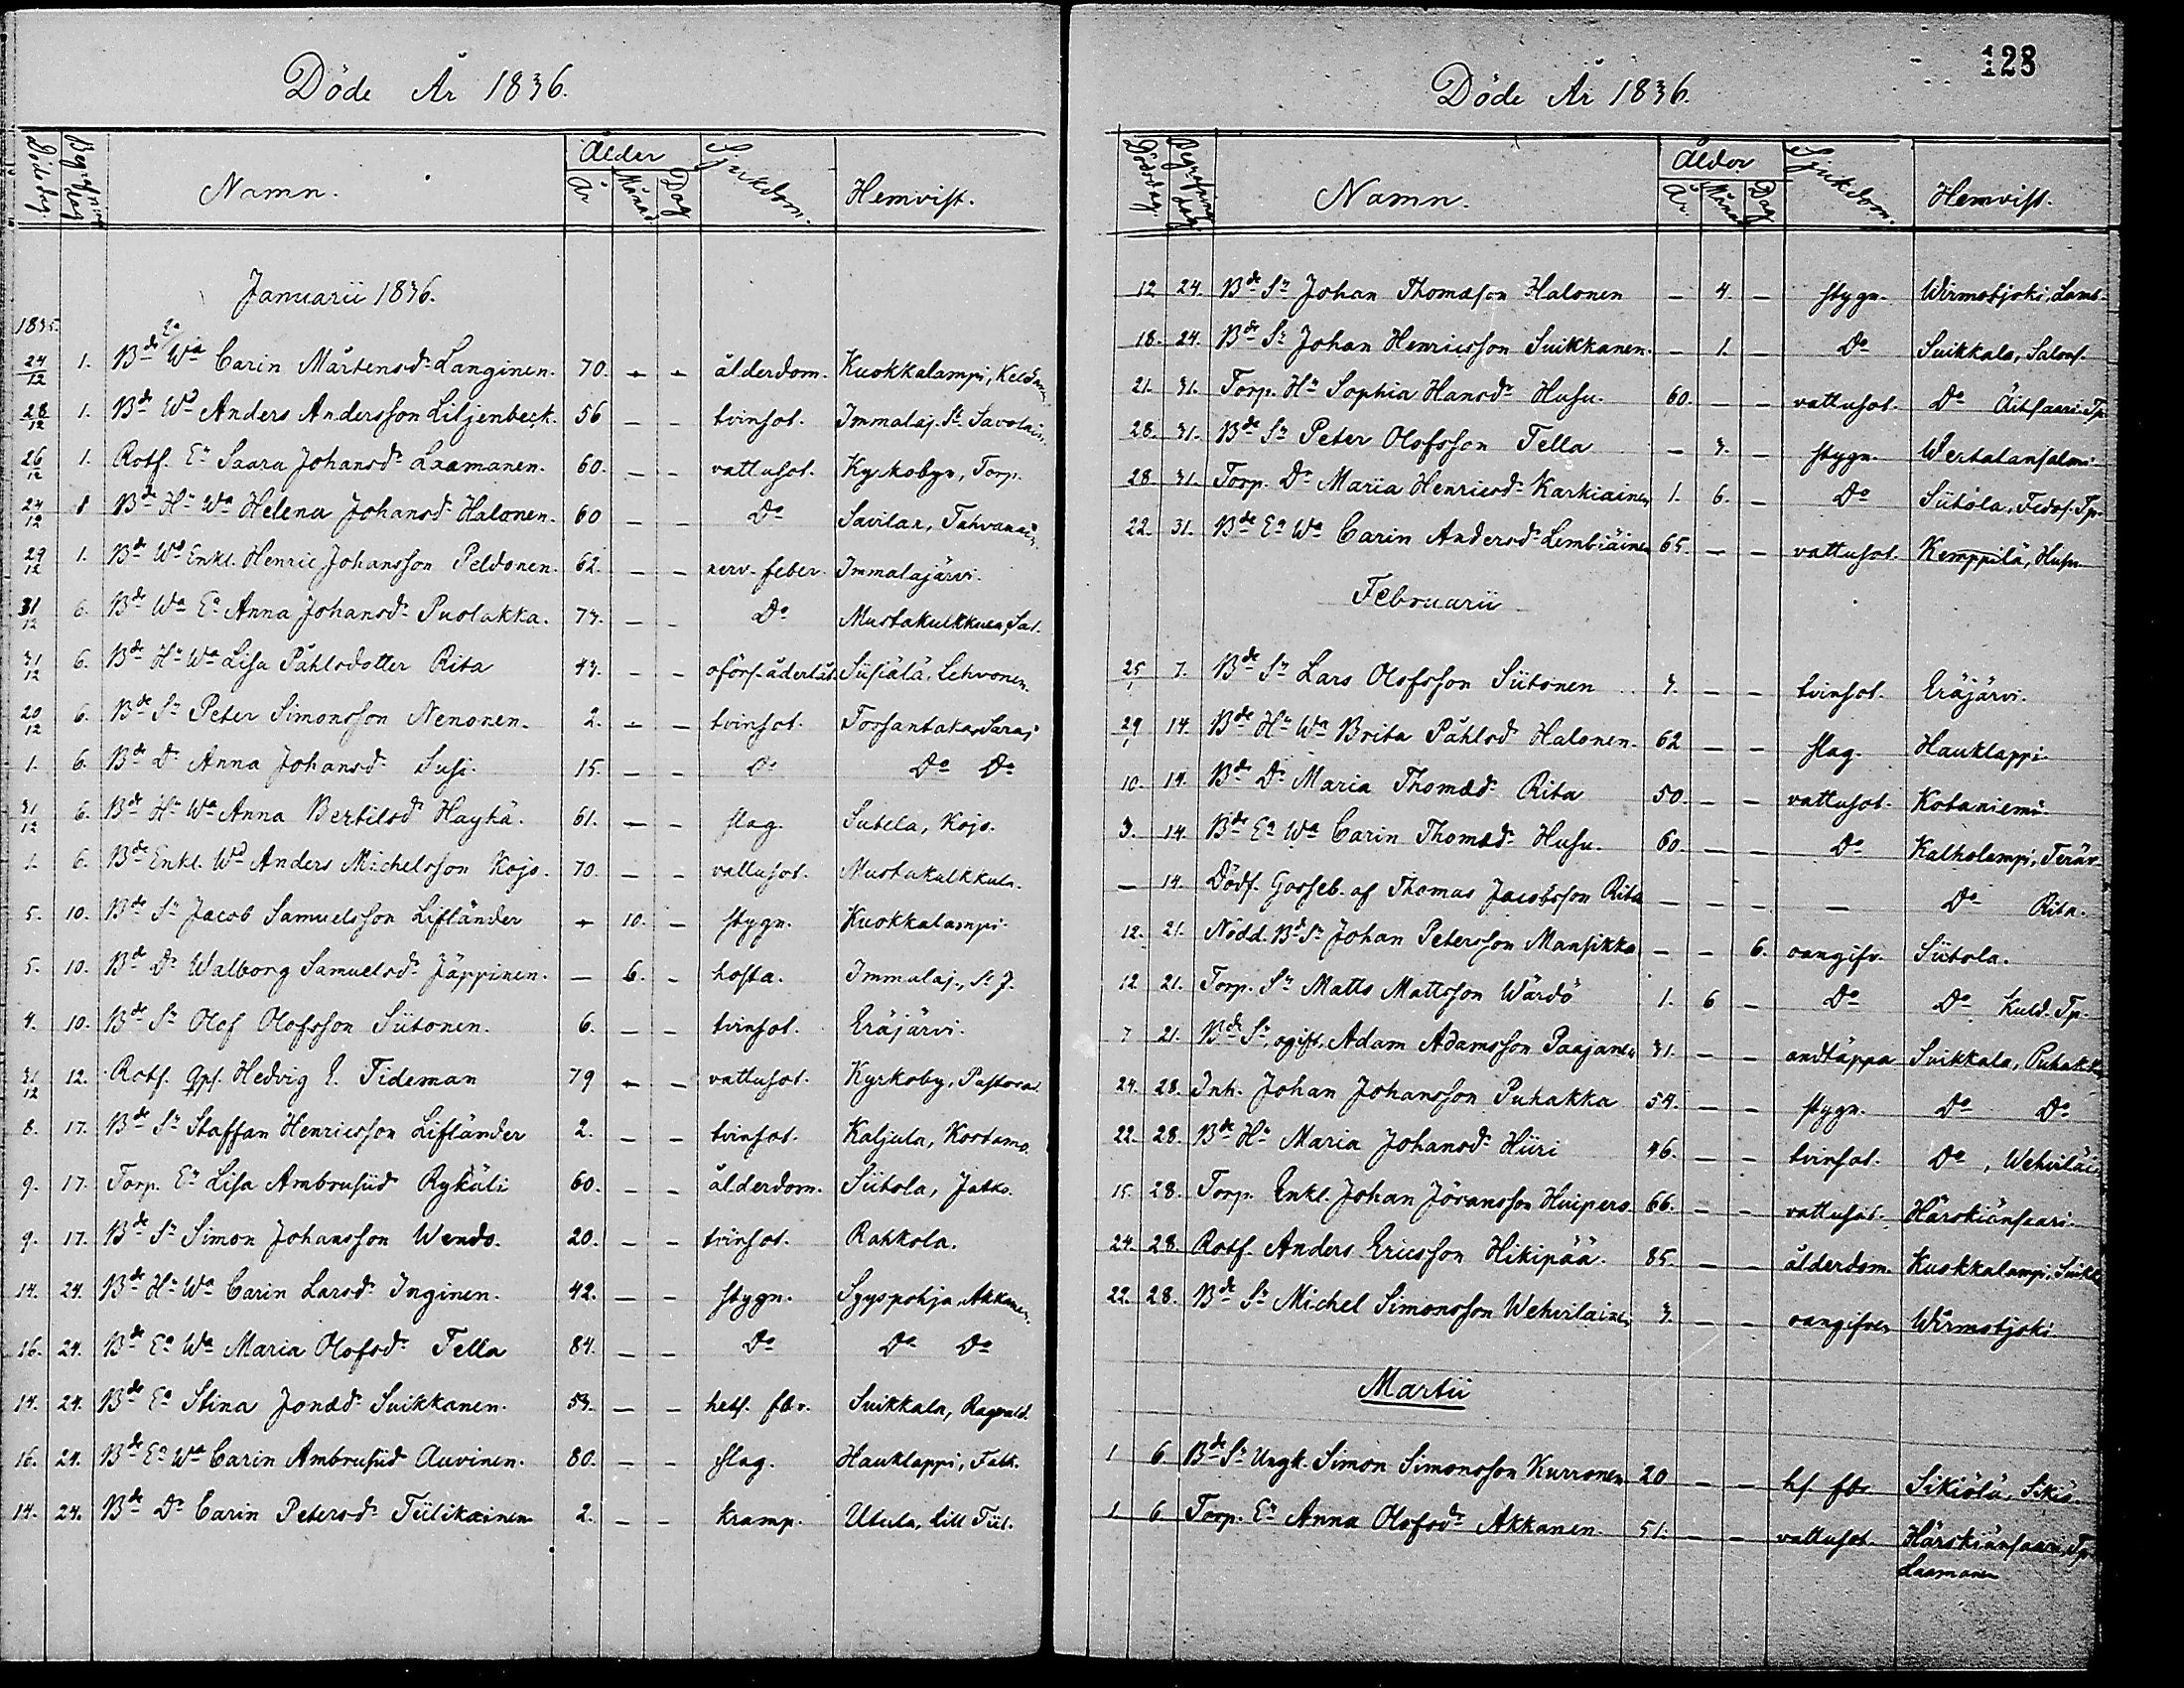 Döde År 1836.
Dödsdag. Begrafningsdag Namn. Ålder År Månad Dag Sjukdom. Hemvist.
Januarii 1836.
1835.
24/12 1. Bde Ea Wa Carin Mårtensdr Langinen. 70. – – ålderdom. Kuokkalampi,
28/12 1. Bde Wd Andersson Liljenbeck. 56 – – tvinsot. Immalaj. St. Savolain.
26/12 1. Rotf. Ea Saara Johansdr Laamanen. 60. – – vattusot. Kyrkobyn, Torp.
24/12 1 Bde Hu Wa Helena Johansdr Halonen. 60 – – Do Savilax, Tahvanain.
29/12 1. Bde Wd Enkl. Henric Johansson Peldonen. 62. – – nerv. feber. Immalajärvi.
31/12 6. Bde Wa Ea Anna Johansdr Puolakka. 73. – – Do Mustakulkkula, Sal.
31/12 6. Bde Hu Wa Lisa Påhlsdotter Rita 43. – – oförs. åderlåt. Siisiälä, Lehvonen.
20/12 6. Bde Sn Peter Simonsson Nenonen. 2. – – tvinsot. Torsantaka, Saraj.
1. 6. Bde Dr Anna Johansdr Susi. 15. – – Do Do Do
31/12 6. Bde Hu Wa Anna Bertilsdr Hayhä. 61. – – slag. Sutela, Kojo.
1. 6. Bde Enkl. Wd Anders Michelsson Kojo. 70. – – vattusot. Mustakulkkula.
5. 10. Bde Sn Jacob Samuelsson Lifländer – 10. – stygn. Kuokkalampi.
5. 10. Bde Dr Walborg Samuelsdr Jäppinen. – 6. – hosta. Immalaj., St. J.
4. 10. Bde Sn Olof Olofsson Siitonen. 6. – – tvinsot. Eräjärvi.
31/12 12. Rotf. Hedvig E. Tideman 79 – – vattusot. Kyrkoby, Pastorat
8. 17. Bde Sn Staffan Henricsson Lifländer 2. – – tvinsot. Kaljula, Kostamo.
9. 17. Torp. Ea Lisa Ambrusiid Rykäli 60. – – ålderdom. Siitola, Jatko.
9. 17. Bde Sn Simon Johansson Wendo. 20. – – tvinsot. Rahkola.
14. 24. Bde Hu Wa Carin Larsdr Inginen. 42. – – stygn. Syyspohja, Akkanen.
16. 24. Bde Ea Wa Maria Olofsdr Tella 84. – – Do Do Do
14. 24. Bde Ea Stina Jonædr Suikkanen. 53. – – hets. fbr. Suikkala, Ragvald.
16. 24. Bde Ea Wa Carin Ambrusiid Auvinen. 80. – – slag. Hauklappi, Falk.
14. 24. Bde Dr Carin Petersdr Tiilikainen 2. – – kramp. Utula, lill Tiil.
128
Döde År 1836.
Dödsdag. Begrafningsdag Namn. Ålder. År Månad Dag Sjukdom. Hemvist.
12 24. Bde Sn Johan Thomæson Halonen – 4. – stygn. Wirmotjoki, Lamb.
18. 24. Bde Sn Johan Henricsson Suikkanen. – 1. – Do Suikkala,
21. 31. Torp. Hu Sophia Hansdr Husu. 60. – – vattusot. Do Äitsaari Tp.
28. 31. Bde Sn Peter Olofsson Tella – 3. – stygn. Wertalansalmi
28. 31. Torp. Dr Maria Henricsdr Karkiainen 1. 6. – Do Siitola, Fedos. Tp.
22. 31. Bde Ea Wa Carin Andersdr Lembiäinen 65. – – vattusot. Kemppilä, Husu
Februarii
25/1 7. Bde Sn Lars Olofsson Siitonen 3. – – tvinsot. Eräjärvi.
29/1 14. Bde Hu Wa Brita Påhlsdr Halonen. 62 – – slag. Hauklappi.
10. 14. Bde Dr Maria Thomædr Rita 50. – – vattusot. Kotaniemi.
3. 14. Bde Ea Wa Carin Thomædr Husu. 60. – – Do Kalholampi, Teräv.
– 14. Dödf. Gosseb. af Thomas Jacobsson Rita – – – – Do Rita.
12. 21. Nödd. Bde Sn Johan Petersson Mansikka – – 6. oangifv. Siitola.
12 21. Torp. Sn Matts Mattsson Wärdö 1. 6 – Do Do Kuld. Tp.
7 21. Bde Sn, ogift, Adam Adamsson Paajanen 31. – – andtäppa Suikkala, Puhakka
24. 28. Inh. Johan Johansson Puhakka 54. – – stygn. Do Do
22. 28. Bde Hu Maria Johansdr Hiiri 46. – – tvinsot. Do, Wehviläin
15. 28. Torp. Enkl. Johan Jöransson Huipero 66. – – vattusot. Härskiänsaari.
24. 28. Rotf. Anders Ericsson Hikipää. 85. – – ålderdom. Kuokkalampi, Suikk
22. 28. Bde Sn Michel Simonsson Wehvilainen 3. – – oangifven Wirmotjoki
Martii
1 6. Bde Sn Ungk. Simon Simonsson Kurronen 20 – – hs. fbr Sikiölä, Sikiö.
1. 6 Torp. Ea Anna Olofsdr Akkanen. 51. – – vattusot. Härskiänsaari, Tp.
Laamanen